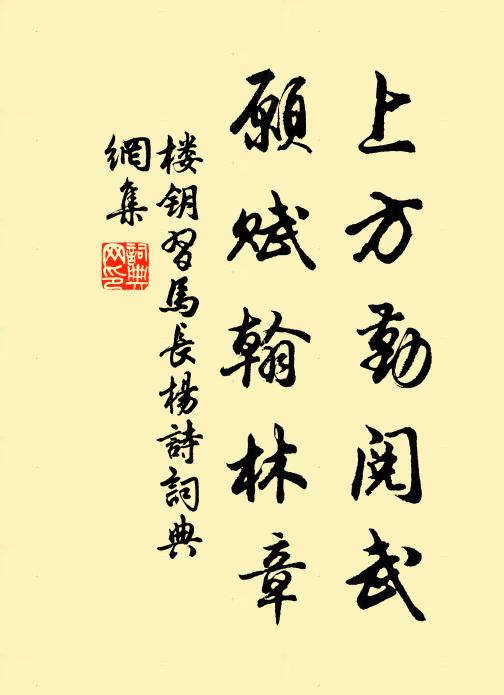 上方勤阅武
願赋翰林章
楼钥習馬長楊詩詞典
網集
詞典网印